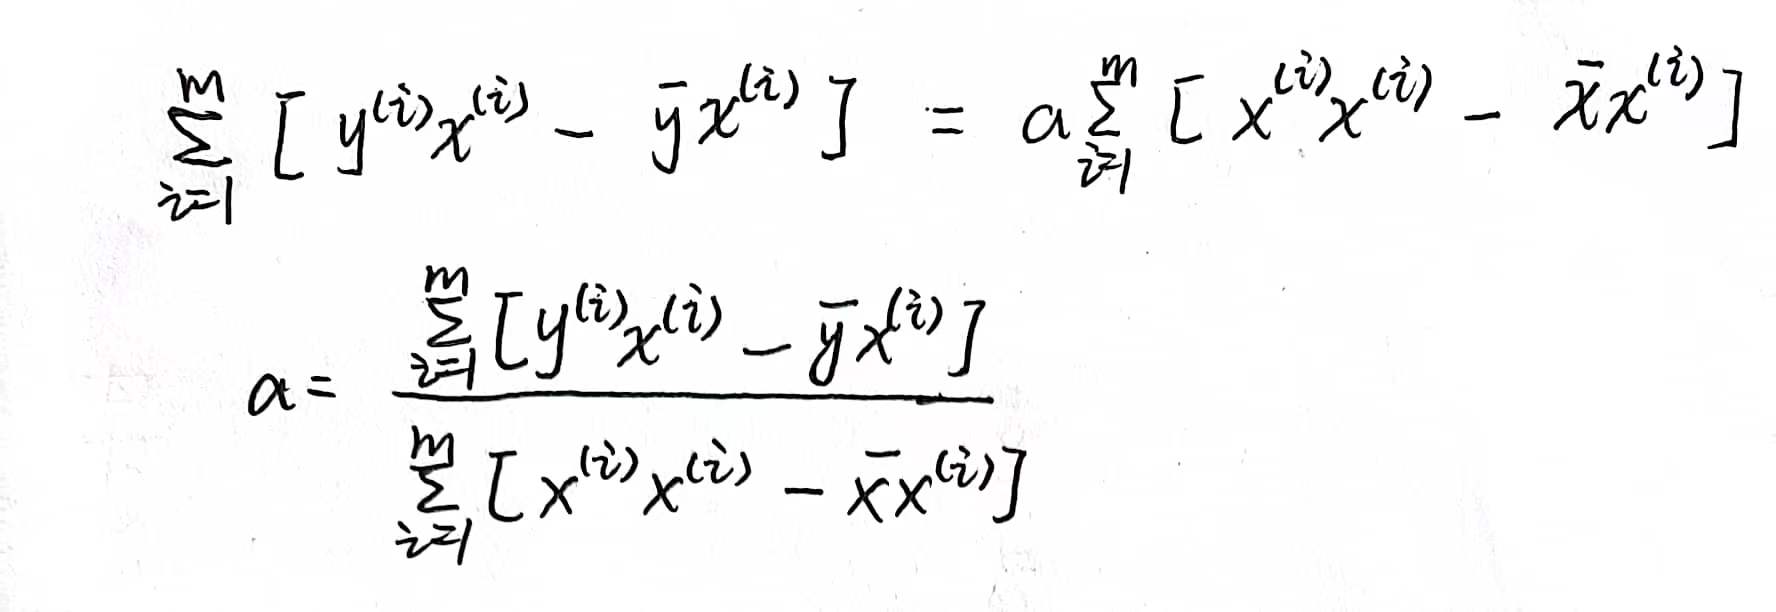 \sum_{i=1}^{m} [ y^{(i)} x^{(i)} - \bar{y} x^{(i)} ] = a \sum_{i=1}^{m} [ x^{(i)} x^{(i)} - \bar{x} x^{(i)} ]
a = \frac{\sum_{i=1}^{m} [ y^{(i)} x^{(i)} - \bar{y} x^{(i)} ]}{\sum_{i=1}^{m} [ x^{(i)} x^{(i)} - \bar{x} x^{(i)} ]}